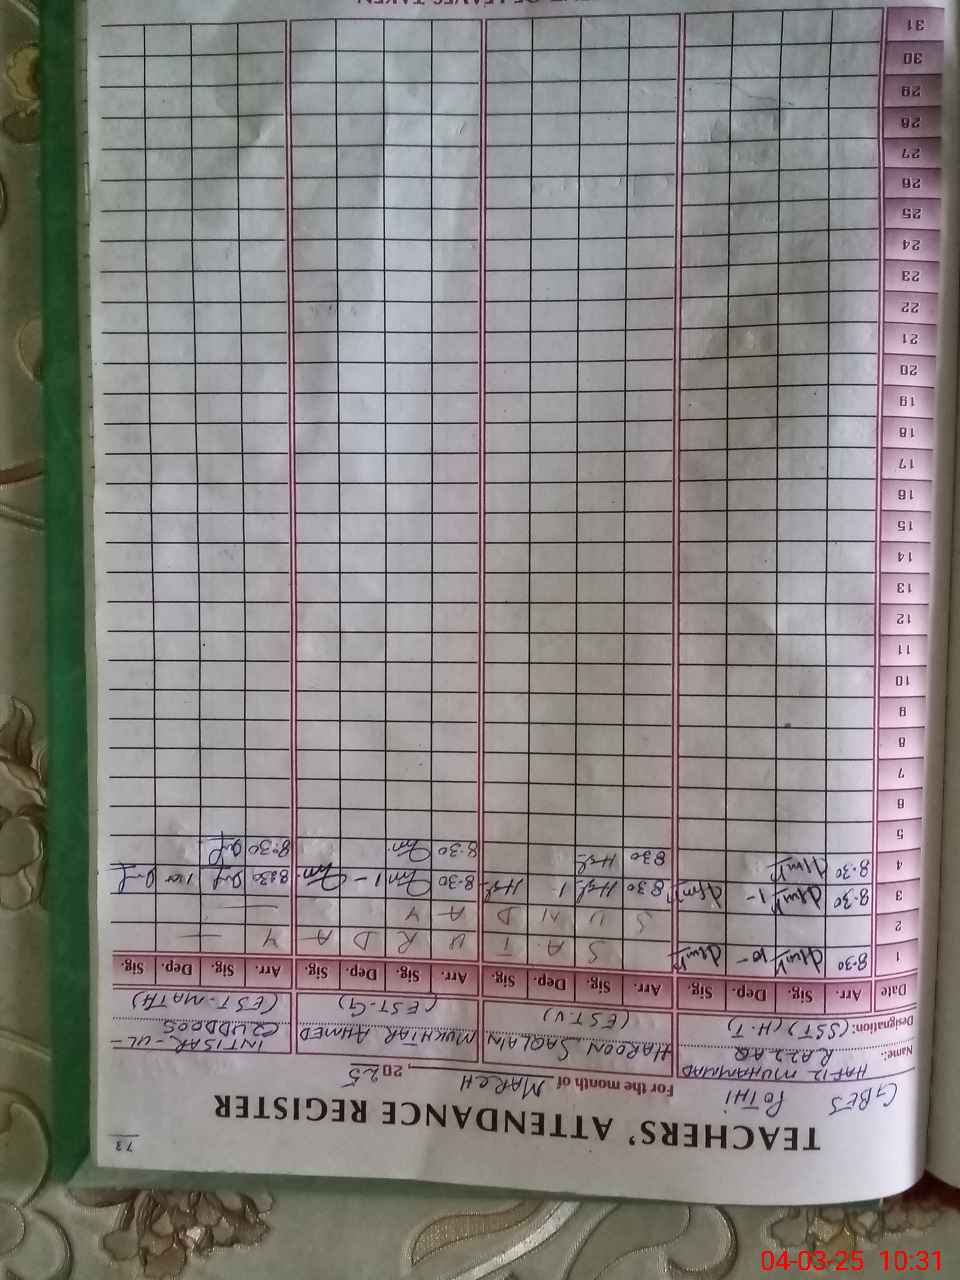 73
TEACHERS' ATTENDANCE REGISTER
GBES POTHI For the month of MARCH 2025
Name: HAFIZ MUHAMMAD RAZZAQ HAROON SAQLAIN MUKHTAR AHMED INTISAR-UL-QUDDOOS
Designation: (SST) (H.T) (EST-V) (EST-G) (EST-MATH)
Date Arr. Sig. Dep. Sig. Arr. Sig. Dep. Sig. Arr. Sig. Dep. Sig. Arr. Sig. Dep. Sig.
1 8-30 10- S A T U R D A Y
2 S U N D A Y
3 8-30 1- 8:30 1 8-30 1- 8:30
4 8-30 8:30 8-30 8:30
5
6
7
8
9
10
11
12
13
14
15
16
17
18
19
20
21
22
23
24
25
26
27
28
29
30
31
OF LEAVES TAKEN
04-03-25 10:31